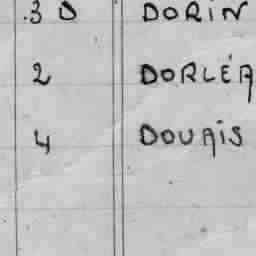 .30 DORIN
2 DORLÉA
4 DOUAIS